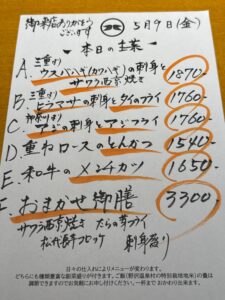 御来店ありがとうございます
5月9日(金)
~本日の主菜~
A. 三重より ウスバハギ(カワハギ)の刺身と サワラ西京焼き 1870-
B. 三重より ヒラマサの刺身とタイのフライ 1760-
C. アジの刺身とアジフライ 1760-
D. 重ねロースのとんかつ 1540-
E. 和牛のメンチカツ 1650
F. おまかせ御膳 3300-
サワラ西京焼き たらの芽フライ
コロッケ 刺身盛り
日々の仕入れによりメニューが変わります。
どちらにも種類豊富な総菜盛りが付きます。ご飯(野沢温泉村の特別栽培地米)の量は
調節できますのでお気軽にお申し付けください。一杯までおかわり出来ます。